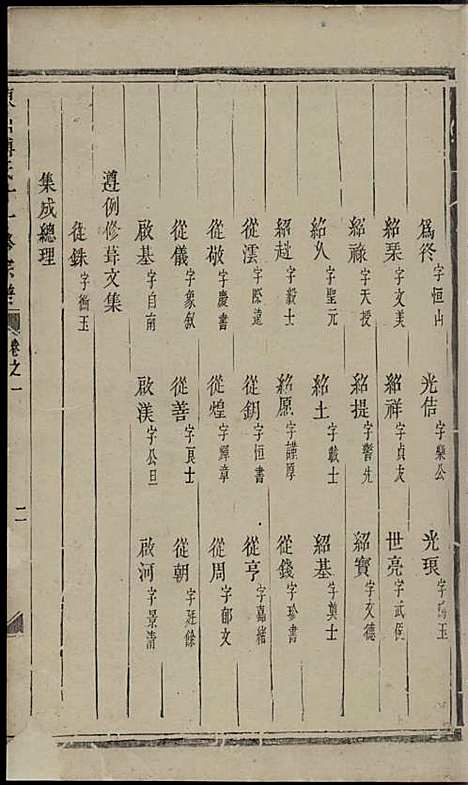 為佟 字恒山 光佶 字樂公 光瑔 字瑞玉
紹琹 字文美 紹祥 字貞友 世亮 字武侯
紹祿 字天授 紹提 字警先 紹寶 字文德
紹久 字聖元 紹士 字載士 紹基 字奠士
紹趙 字毅士 紹原 字謹厚 從錢 字珍書
從澐 字際遠 從鈅 字恒書 從亨 字嘉緒
從敬 字慶書 從煌 字輝章 從周 字郁文
從儀 字象叙 從善 字良士 從朝 字廷餘
啟基 字自南 啟渼 字公旦 啟河 字景清
遵例修葺文集
從銖 字衡玉
集成總理
氏 修宗譜 卷之一 二